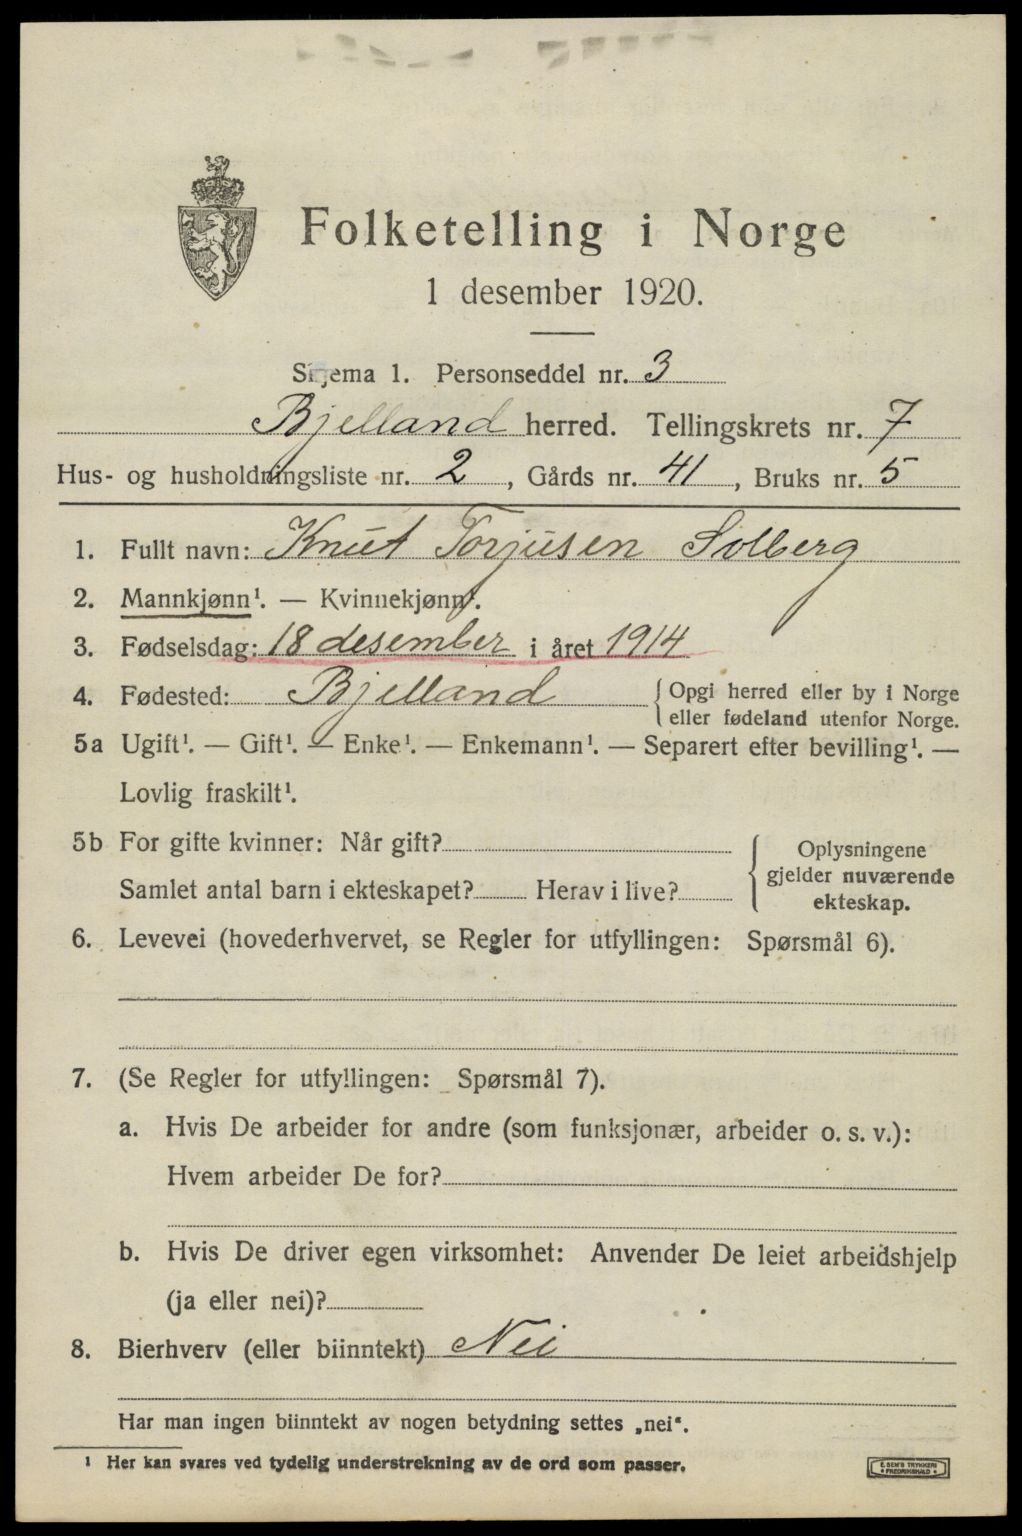 Folketelling i Norge
1 desember 1920.
Skjema 1. Personseddel nr. 3
Bjelland herred. Tellingskrets nr. 7
Hus- og husholdningsliste nr. 2, Gårds nr. 41, Bruks nr. 5
1. Fullt navn: Knut Torjusen Solberg
2. Mannkjønn¹. — Kvinnekjønn¹.
3. Fødselsdag: 18 desember i året 1914
4. Fødested: Bjelland { Opgi herred eller by i Norge
eller fødeland utenfor Norge.
5a Ugift¹. — Gift¹. — Enke¹. — Enkemann¹. — Separert efter bevilling¹. —
Lovlig fraskilt¹.
5b For gifte kvinner: Når gift?
Samlet antal barn i ekteskapet? Herav i live?
Oplysningene
gjelder nuværende
ekteskap.
6. Levevei (hovederhvervet, se Regler for utfyllingen: Spørsmål 6).
7. (Se Regler for utfyllingen: Spørsmål 7).
a. Hvis De arbeider for andre (som funksjonær, arbeider o. s. v.):
Hvem arbeider De for?
b. Hvis De driver egen virksomhet: Anvender De leiet arbeidshjelp
(ja eller nei)?
8. Bierhverv (eller biinntekt) Nei
Har man ingen biinntekt av nogen betydning settes „nei“.
¹ Her kan svares ved tydelig understrekning av de ord som passer.
E. SEM'S TRYKKERI
FREDRIKSHALD